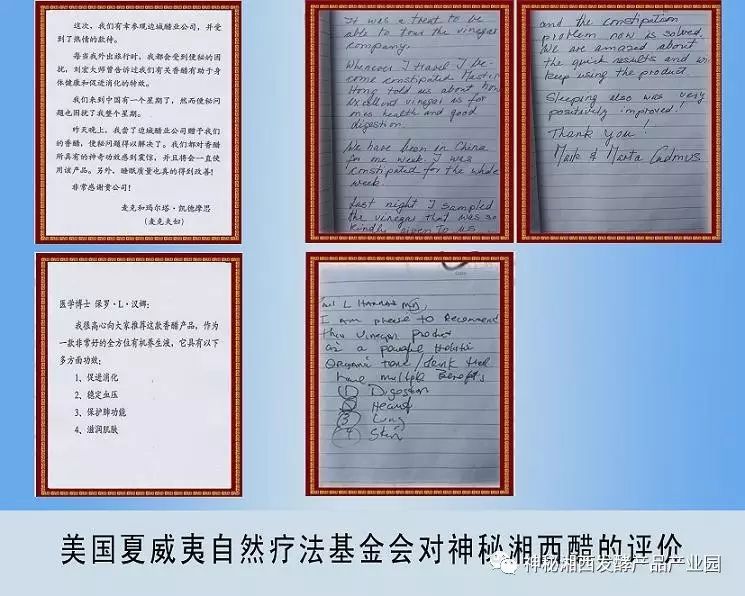 这次，我们有幸参观边城醋业公司，并受
到了热情的款待。
每当我外出旅行时，我都会受到便秘的困
扰，刘宏大师曾告诉过我们有关香醋有助于身
体健康和促进消化的特效。
我们来到中国有一个星期了，然而便秘问
题也困扰了我整个星期。
昨天晚上，我尝了边城醋业公司赠予我们
的香醋，便秘问题得以解决了。我们都对香醋
所具有的神奇功效感到震惊，并且将会一直使
用该产品。另外，睡眠质量也真的得到改善！
非常感谢贵公司！
麦克和玛尔塔·凯德摩思
（麦克夫妇）
It was a treat to be
able to tour the vinegar
company.
Whenever I travel I be-
come constipated. Master
Hong told us about how
excellent vinegar is for
ones health and good
digestion.
We have been in China
for one week. I was
constipated for the whole
week.
Last night I sampled
the vinegar that was so
kindly given to us
and the constipation
problem now is solved.
We are amazed about
the quick results and will
keep using the product.
Sleeping also was very
positively improved!
Thank you!
Mark & Marta Cadmus
医学博士 保罗·L·汉娜：
我很高心向大家推荐这款香醋产品，作为
一款非常好的全方位有机养生液，它具有以下
多方面功效：
1、促进消化
2、稳定血压
3、保护肺功能
4、滋润肌肤
L HANNAH MD,
I am please to Recommend
this vinegar product
as a powerful Holistic
Organic tonic / drink that
have multiple Benefits
1 Digestion
2 Heart
3 Lung
4 Skin
美国夏威夷自然疗法基金会对神秘湘西醋的评价
神秘湘西发酵产品产业园